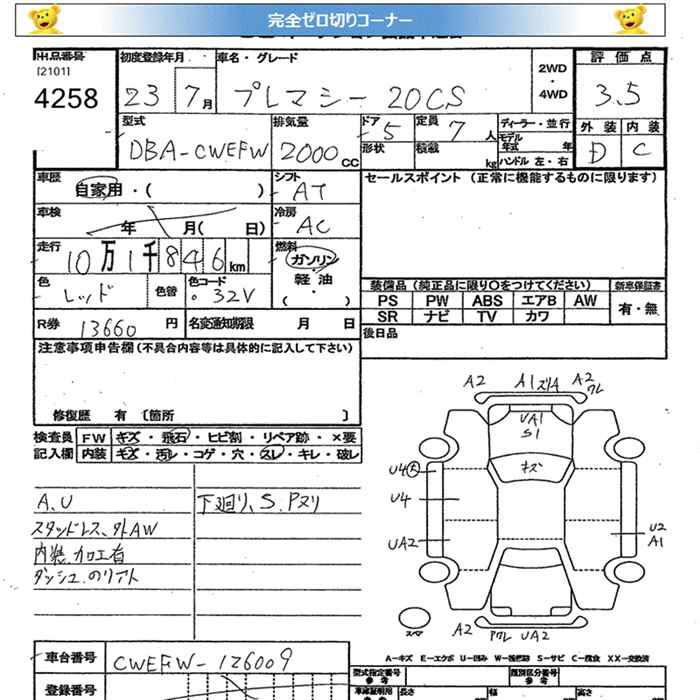 完全ゼロ切りコーナー
出品番号 初度登録年月 車名・グレード 評価点
[2101]
4258 23 7月 プレマシー 20CS 2WD・4WD 3.5
型式 排気量 ドア 5 定員 7 人 ディーラー・並行 外装 内装
DBA-CWEFW 2000cc 形状 積載 kg モデル年式 年 D C
ハンドル 左・右
車歴 自家用・( ) シフト AT セールスポイント (正常に機能するものに限ります)
車検 年 月( 日) 冷房 AC
走行 10万1千846km 燃料 ガソリン・軽油・( )
色 レッド 色替 色コード 32V 装備品(純正品に限り〇をつけてください) 新車保証書
PS PW ABS エアB AW 有・無
SR ナビ TV カワ
R券 13660円 名変通知期限 月 日 後日品
注意事項申告欄(不具合内容等は具体的に記入して下さい)
修復歴 有 [箇所 ]
検査員 FW キズ・飛石・ヒビ割・リペア跡・×要
記入欄 内装 キズ・汚レ・コゲ・穴・スレ・キレ・破レ
A2 A1 ズリA A2 ワレ
UA1
S1
キズ
U4
U4
UA2
U2
A1
スペア
A2 Pワレ UA2
A、U 下廻り、S、Pヌリ
スタッドレス、外AW
内装、加工有
ダッシュ、のりアト
A−キズ E−エクボ U−凹み S−サビ C−腐食 XX−交換済
車台番号 CWEFW-126009
登録番号
型式指定番号 参考 類別区分番号 参考
長さ 幅 高さ